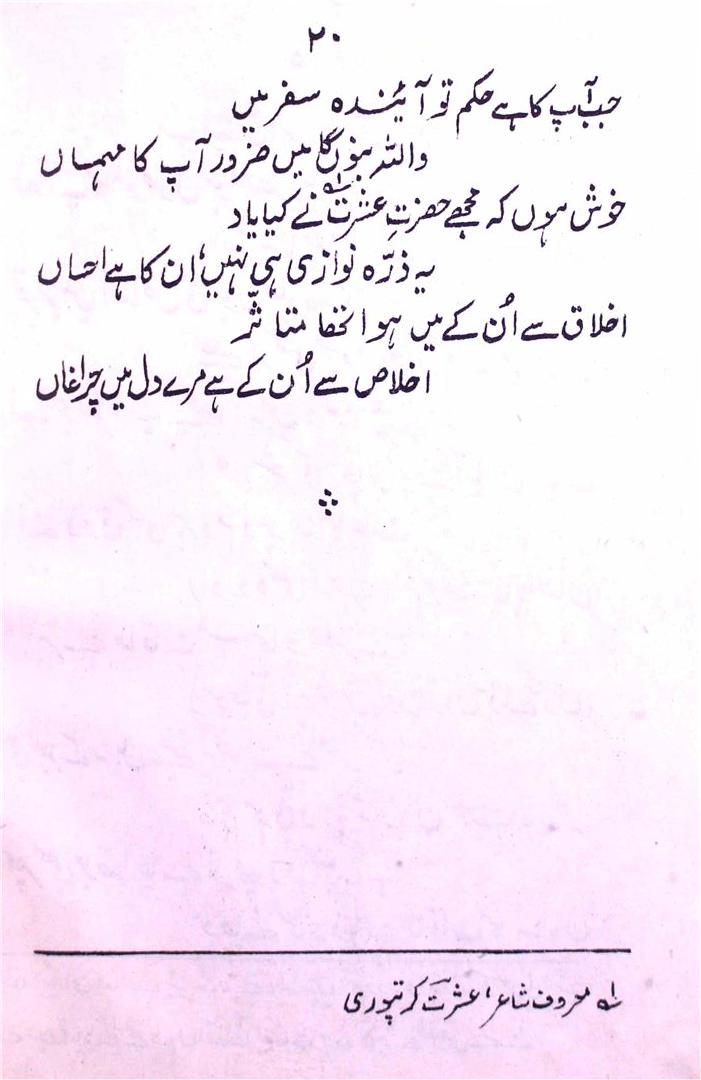 ۲۰
جب آپ کا ہے حکم تو آئندہ سفر میں
واللہ بنوں گا میں ضرور آپ کا مہماں
خوش ہوں کہ مجھے حضرتِ عشرتؔ نے کیا یاد
یہ ذرّہ نوازی ہی نہیں، ان کا ہے احساں
اخلاق سے اُن کے میں ہوا تھا متاثر
اخلاص سے اُن کے ہے مرے دل میں چراغاں
۱؎ معروف شاعر، عشرتؔ کرتپوری